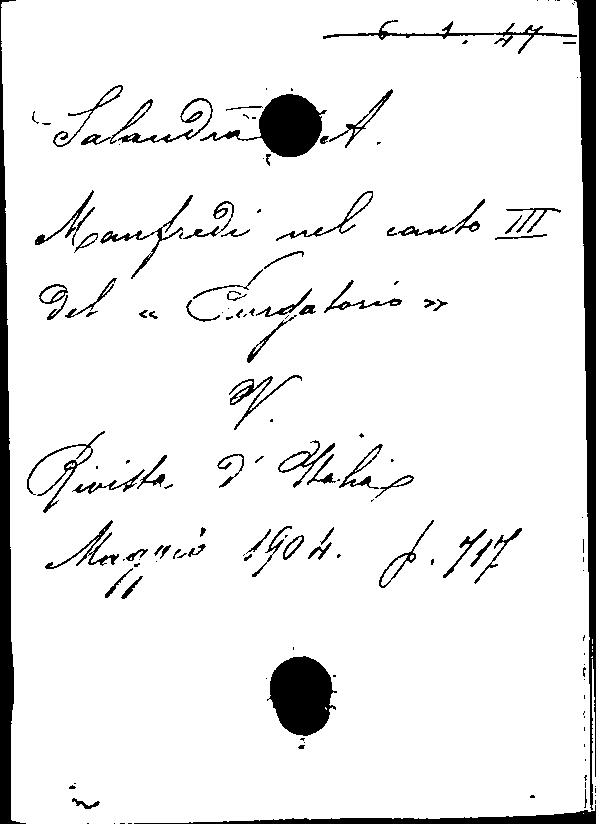 6. 1. 47
Salandra A.
Manfredi nel canto III
del « Purgatorio »
V.
Rivista d' Italia
Maggio 1904. p. 717